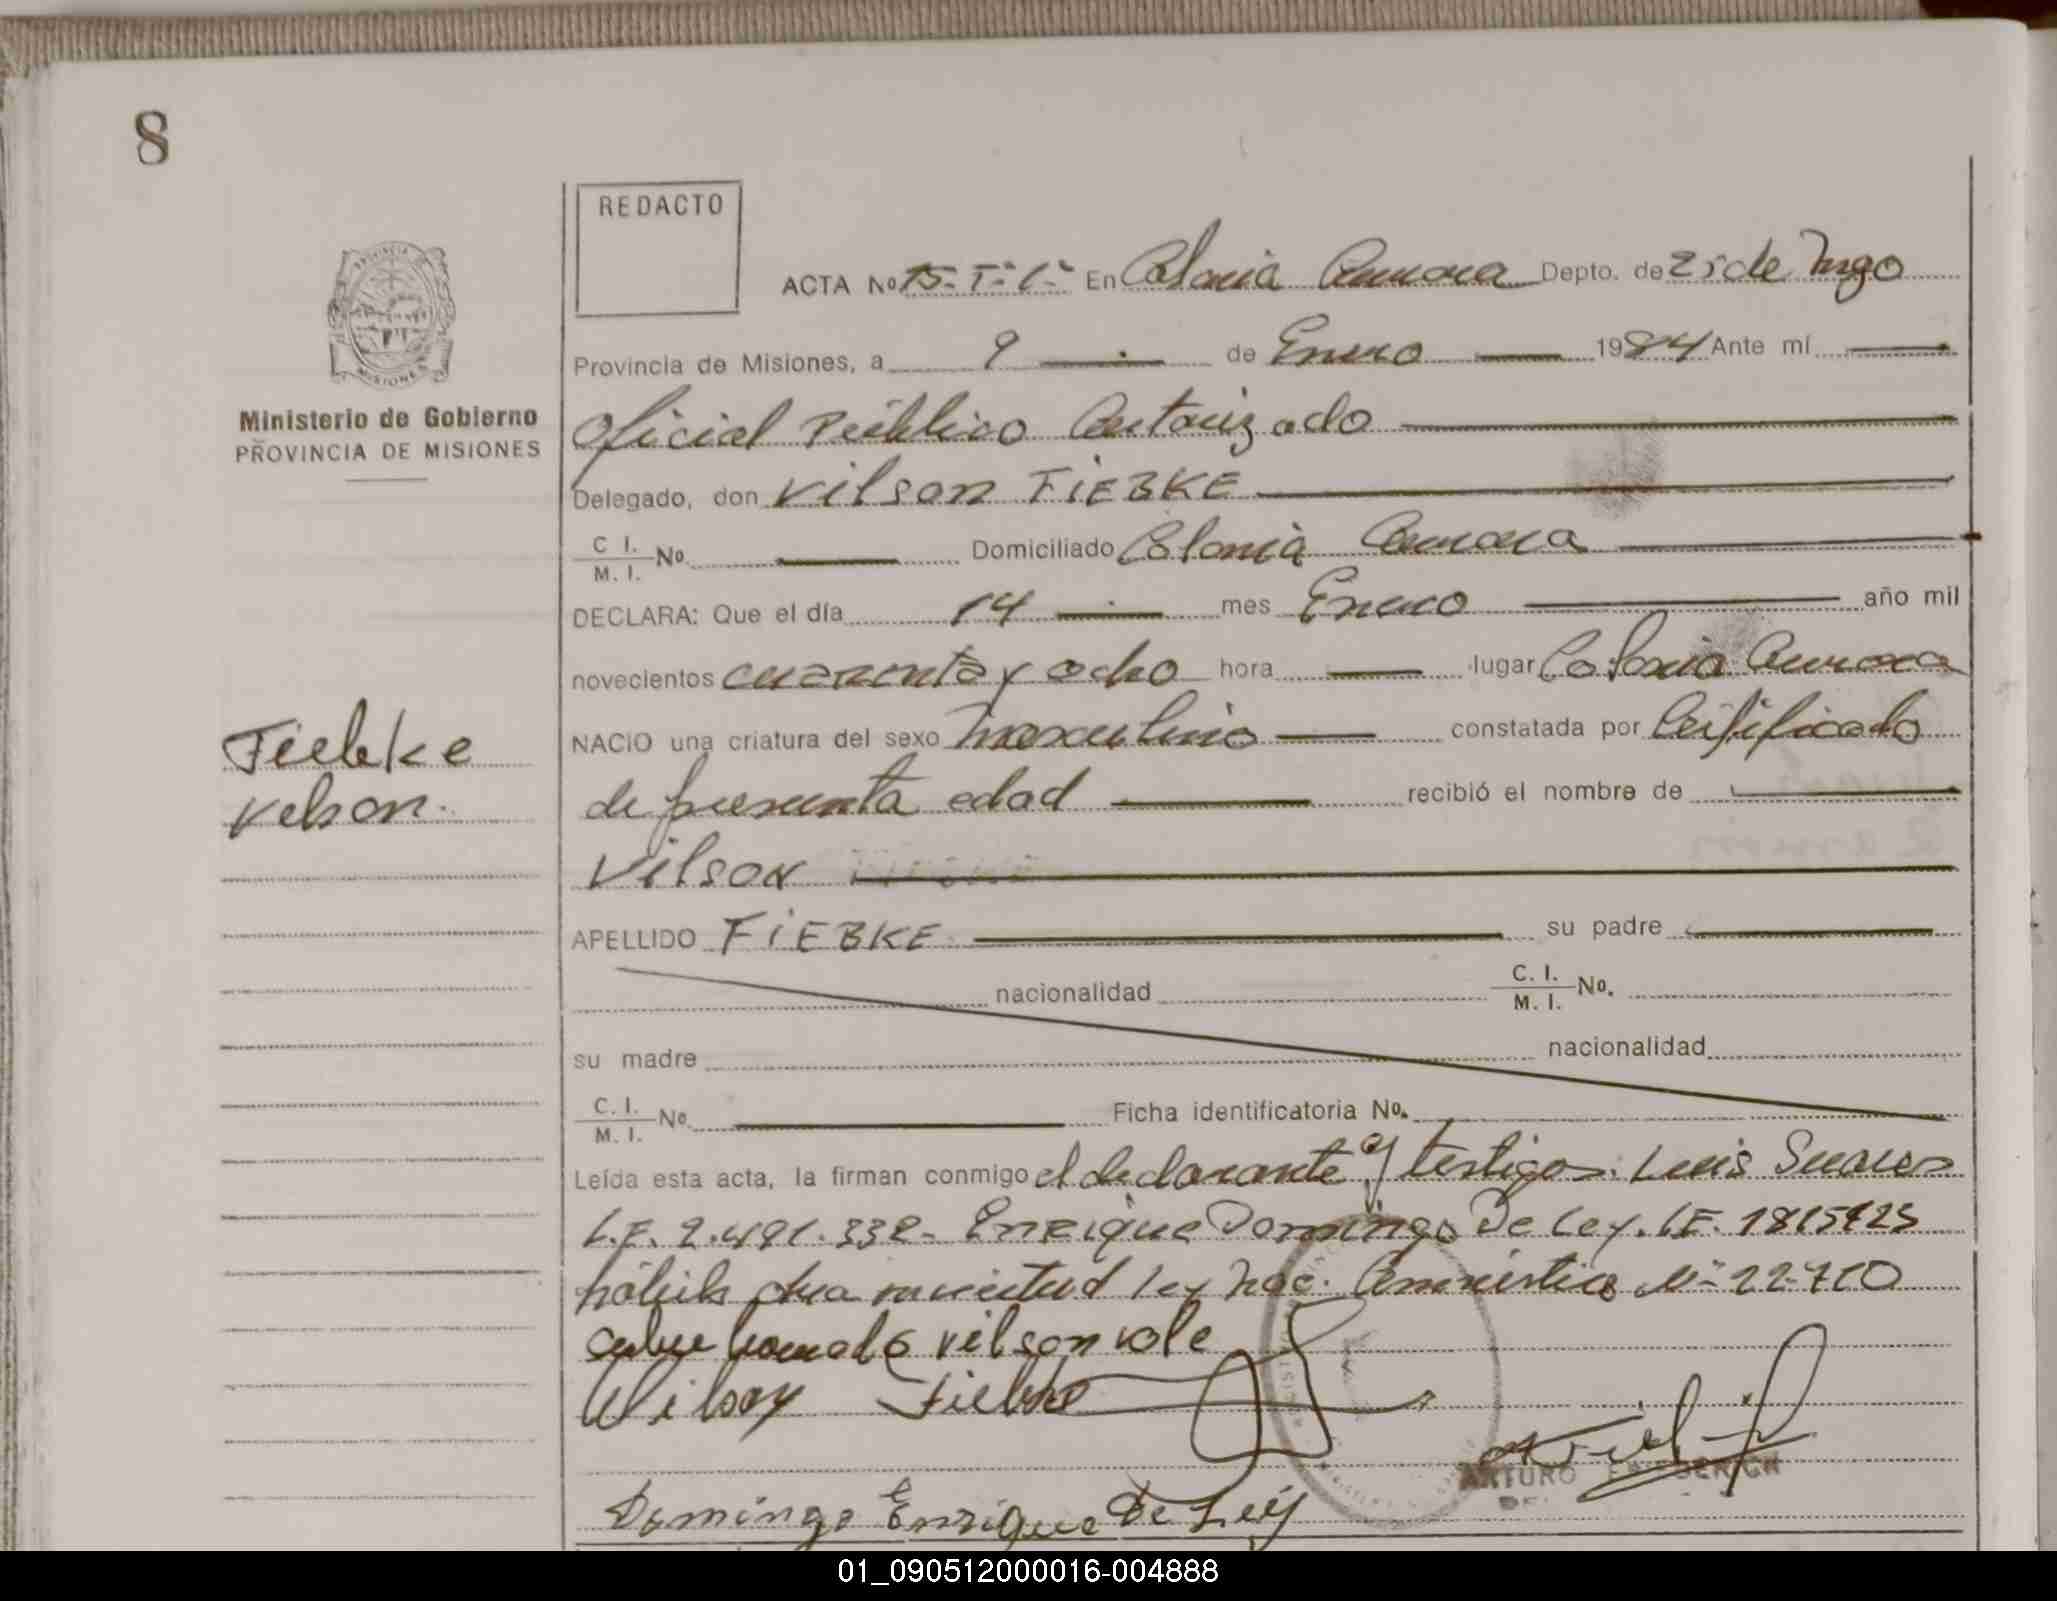 8
REDACTO
ACTA No 15-Tº-1º- En Colonia Aurora Depto. de 25 de Mayo
Provincia de Misiones, a 9 de Enero 1984 Ante mí
PROVINCIA
MISIONES
Ministerio de Gobierno
PROVINCIA DE MISIONES
Oficial Público Autorizado
Delegado, don Vilson FIEBKE
C. I. M. I. No. Domiciliado Colonia Aurora
DECLARA: Que el día 14 mes Enero año mil
novecientos cuarenta y ocho hora lugar Colonia Aurora
NACIO una criatura del sexo masculino constatada por Certificado
de presunta edad recibió el nombre de
Fiebke
Vilson.
Vilson
APELLIDO FIEBKE su padre
nacionalidad C. I. M. I. No.
su madre nacionalidad
C. I. M. I. No. Ficha identificatoria No.
Leída esta acta, la firman conmigo el declarante y testigos: Luis Suares
L.E. 2.491.332- ENRIque Domingo De Ley. LE. 1815425
ley Nac. Amnistia Nº 22.710
sobre borrado vilson vale
Wilson Fiebke
ARTURO
Domingo Enrique De Ley
01_090512000016-004888